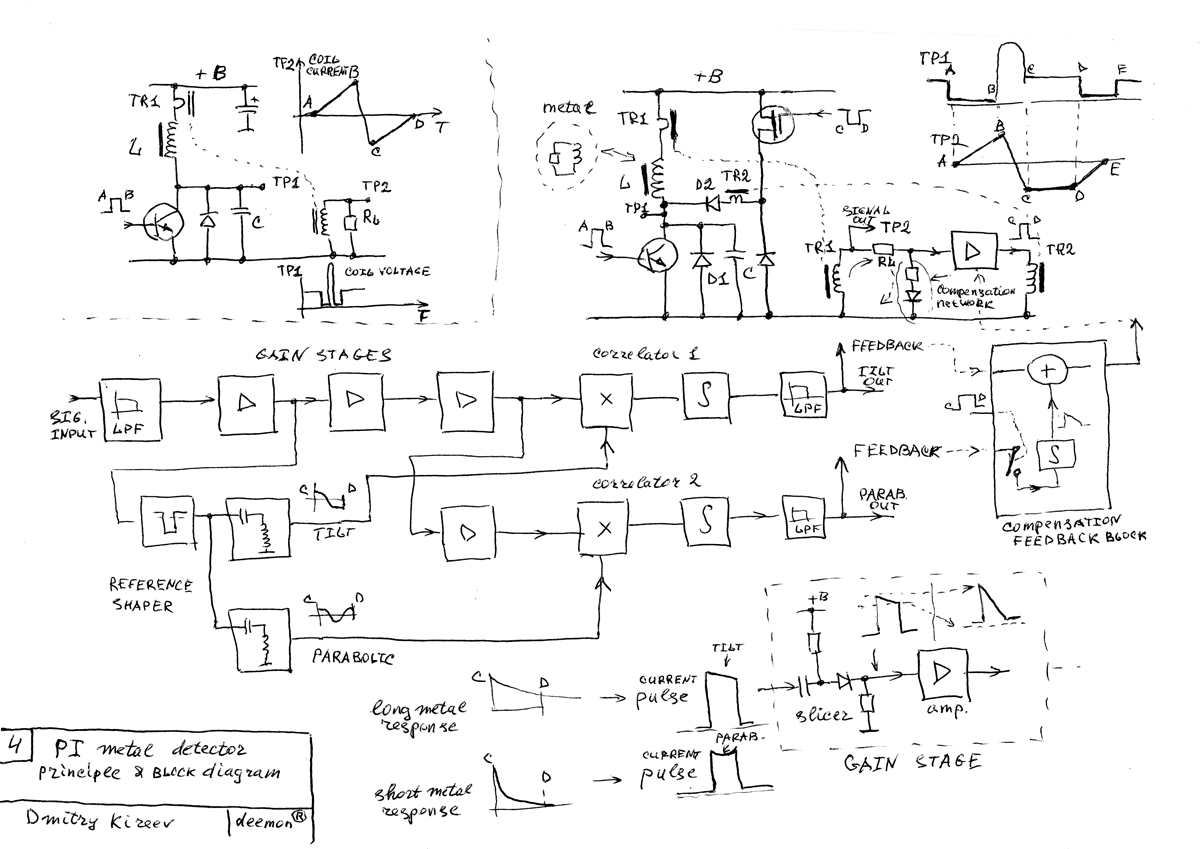 TP2
COIL
CURRENT
B
A
C
D
T
+B
TR1
+
L
TP1
A
B
C
TP2
RL
TP1
COIL VOLTAGE
t
metal
+B
TR1
C
D
L
D2
TR2
TP1
A
B
D1
C
SIGNAL
OUT
TP2
TR1
RL
compensation
network
C
D
TR2
TP1
A
B
C
D
E
TP2
A
B
C
D
E
GAIN STAGES
SIG.
INPUT
LPF
correlator 1
X
∫
LPF
FEEDBACK
TILT
OUT
C
D
TILT
REFERENCE
SHAPER
C
D
PARABOLIC
correlator 2
X
∫
LPF
FEEDBACK
PARAB.
OUT
+
C
D
∫
COMPENSATION
FEEDBACK BLOCK
long metal
response
C
D
CURRENT
pulse
TILT
short metal
response
C
D
CURRENT
pulse
PARAB.
+B
slicer
amp.
GAIN STAGE
4
PI metal detector
principle & BLOCK diagram
Dmitry Kireev
deemon®